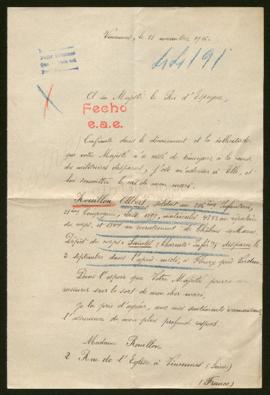 Vincennes, le 21 novembre 1916.
441191
A sa Majesté le Roi d'Espagne,
Fecho
e.a.e.
Confiante dans le dévouement et la sollicitude
que votre Majesté n'a cessé de témoigner à la cause
des militaires disparus, j'ose m'adresser à Elle, et
lui soumettre le cas de mon mari.
Rouillon Albert, soldat au Infanterie,
Compagnie, matricule au
corps, et au recrutement de
Dépôt de corps: (Charente Infre) disparu le
2 septembre dans l'après midi, à Fleury près Verdun
Dans l'espoir que Votre Majesté pourra me
rassurer sur le sort de mon cher mari,
Je la prie d'agréer, avec mes sentiments reconnaissants,
l'assurance de mon plus profond respect.
Madame Rouillon
2 Rue de l'Eglise à Vincennes (Seine)
(France)